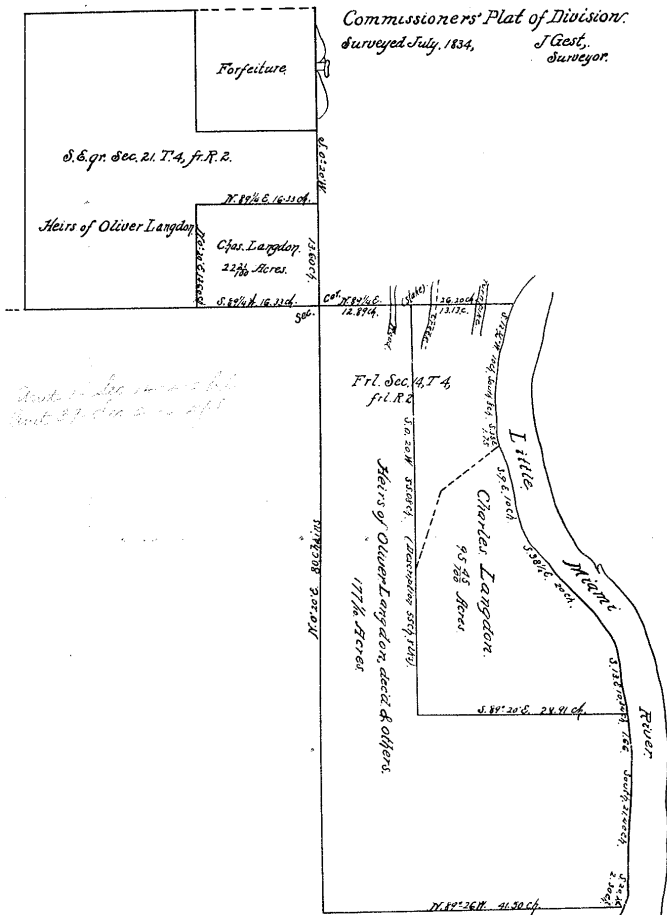 Commissioners' Plat of Division.
Surveyed July, 1834,
J Gest,
Surveyor.
Forfeiture.
S. 0° 20' W
S.E. qr. Sec. 21. T. 4, fr. R. 2.
N. 89¼ E. 16.33 ch.
Heirs of Oliver Langdon
Chas. Langdon.
22 21/100 Acres.
13.60 ch
S. 89¼ W. 16.33 ch.
Sec.
Cor.
N. 89¼ E.
12.89 ch.
(Stake)
26.20 ch
13.13 c.
Frl. Sec. 14, T 4,
frl. R 2
S. 0. 20. W 55.08 ch. (Description 55 ch. 8 lks).
Heirs of Oliver Langdon, dec'd. & others.
177 1/10 Acres.
Charles Langdon.
95 45/100 Acres.
S. 9. E. 10 ch.
S. 38½ E. 20 ch.
Little Miami River.
N. 0° 20' E 80 Chains
S. 89° 20' E. 28.91 ch.
South, 21.40 ch.
N. 89° 26 W. 41.50 ch.